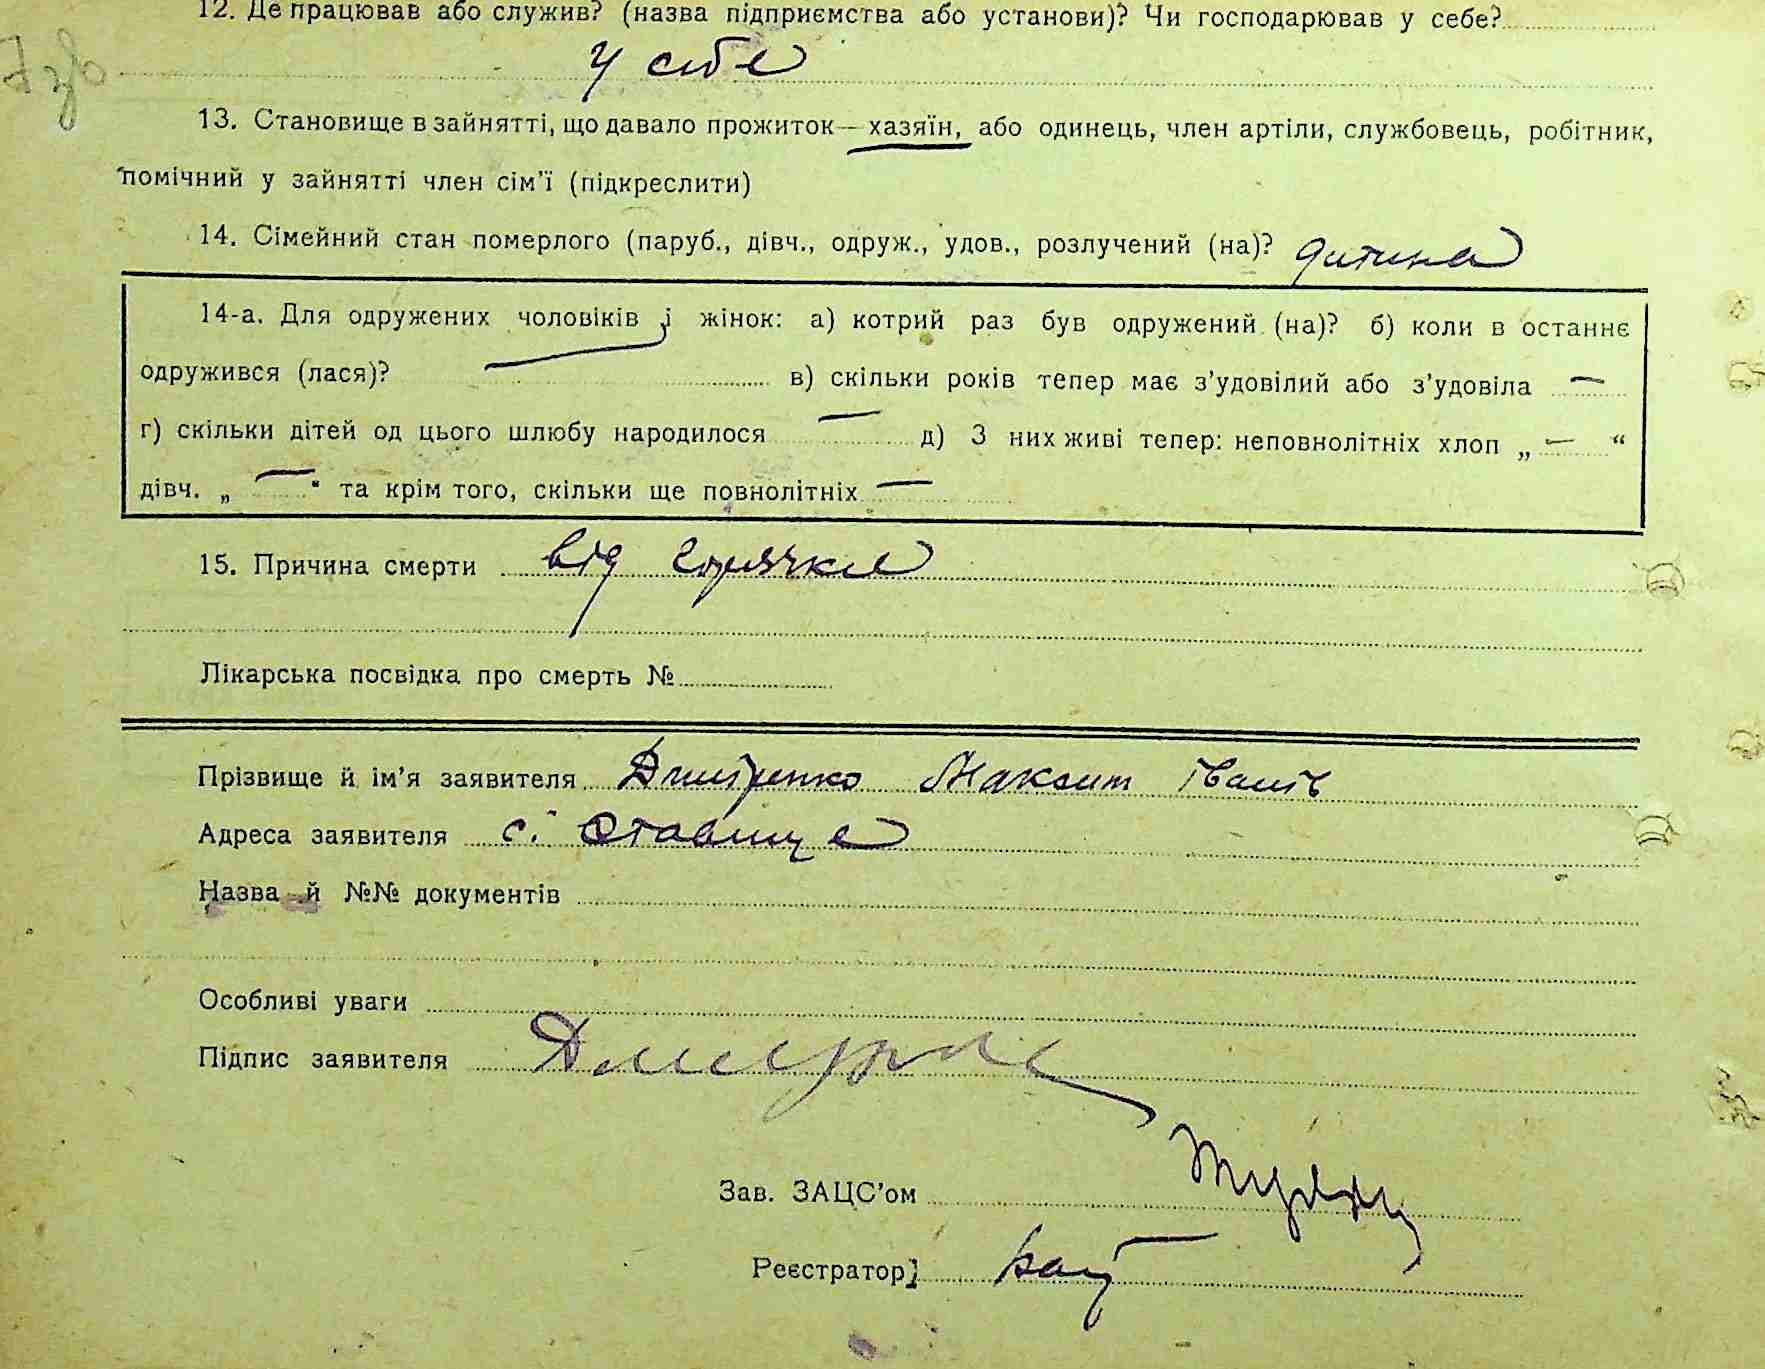 12. Де працював або служив? (назва підприємства або установи)? Чи господарював у себе?
у себе
13. Становище в зайнятті, що давало прожиток—хазяїн, або одинець, член артіли, службовець, робітник,
помічний у зайнятті член сім'ї (підкреслити)
14. Сімейний стан померлого (паруб., дівч., одруж., удов., розлучений (на)? дитина
14-а. Для одружених чоловіків і жінок: а) котрий раз був одружений (на)? б) коли в останнє
одружився (лася)? — в) скільки років тепер має з'удовілий або з'удовіла —
г) скільки дітей од цього шлюбу народилося — д) З них живі тепер: неповнолітніх хлоп „ — “
дівч. „ — “ та крім того, скільки ще повнолітніх —
15. Причина смерти від горячки
Лікарська посвідка про смерть №
Прізвище й ім'я заявителя Дмитренко Максим Іванів
Адреса заявителя с. Ставище
Назва й №№ документів
Особливі уваги
Підпис заявителя
Зав. ЗАЦС'ом
Реєстратор